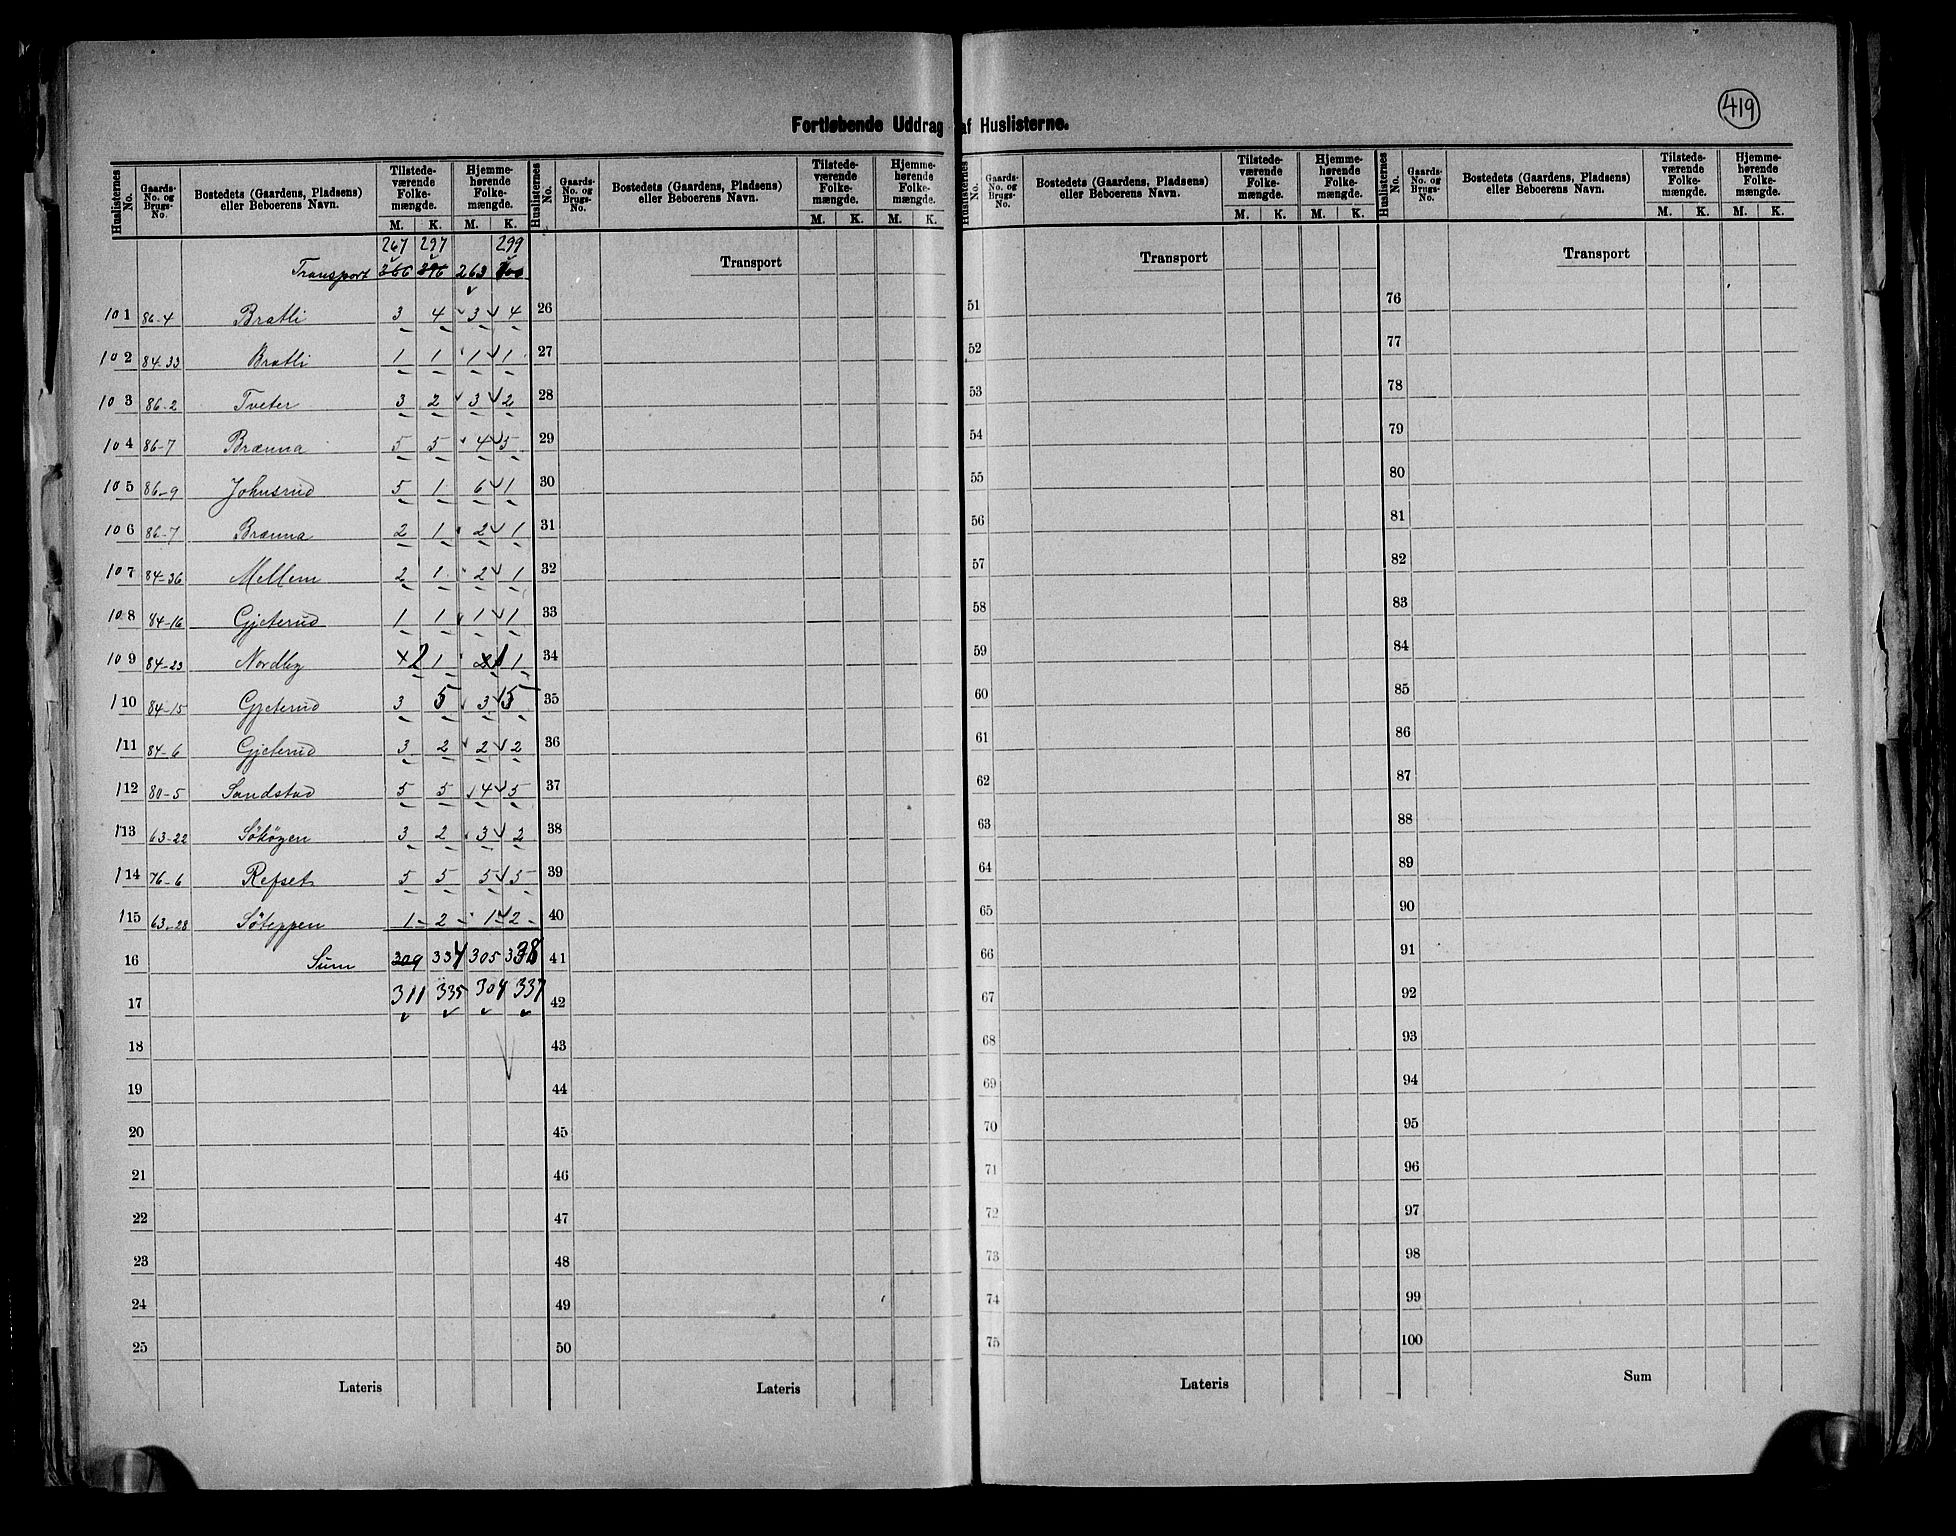 419
Fortløbende Uddrag af Huslisterne.
Huslisternes No. | Gaards-No. og Brugs-No. | Bostedets (Gaardens, Pladsens) eller Beboerens Navn. | Tilstedeværende Folkemængde. M. K. | Hjemmehørende Folkemængde. M. K.
Huslisternes No. | Gaards-No. og Brugs-No. | Bostedets (Gaardens, Pladsens) eller Beboerens Navn. | Tilstedeværende Folkemængde. M. K. | Hjemmehørende Folkemængde. M. K.
Huslisternes No. | Gaards-No. og Brugs-No. | Bostedets (Gaardens, Pladsens) eller Beboerens Navn. | Tilstedeværende Folkemængde. M. K. | Hjemmehørende Folkemængde. M. K.
Huslisternes No. | Gaards-No. og Brugs-No. | Bostedets (Gaardens, Pladsens) eller Beboerens Navn. | Tilstedeværende Folkemængde. M. K. | Hjemmehørende Folkemængde. M. K.
267 297 299
Transport 263 Transport Transport Transport
101 86-4 Bratli 3 4 3 4 26 51 76
102 84-33 Bratli 1 1 1 1 27 52 77
103 86-2 Tveter 3 2 3 2 28 53 78
104 86-7 Brænna 5 5 4 5 29 54 79
105 86-9 Johnsrud 5 1 6 1 30 55 80
106 86-7 Brænna 2 1 2 1 31 56 81
107 84-36 Mellem 2 1 2 1 32 57 82
108 84-16 Gjeterud 1 1 1 1 33 58 83
109 84-23 Nordby 2 1 1 1 34 59 84
110 84-15 Gjeterud 3 5 3 5 35 60 85
111 84-6 Gjeterud 3 2 2 2 36 61 86
112 80-5 Sandstad 5 5 4 5 37 62 87
113 63-22 3 2 3 2 38 63 88
114 76-6 Refset 5 5 5 5 39 64 89
115 63-28 1 2 1 2 40 65 90
16 Sum 309 334 305 338 41 66 91
17 311 335 304 337 42 67 92
18 43 68 93
19 44 69 94
20 45 70 95
21 46 71 96
22 47 72 97
23 48 73 98
24 49 74 99
25 50 75 100
Lateris Lateris Lateris Sum